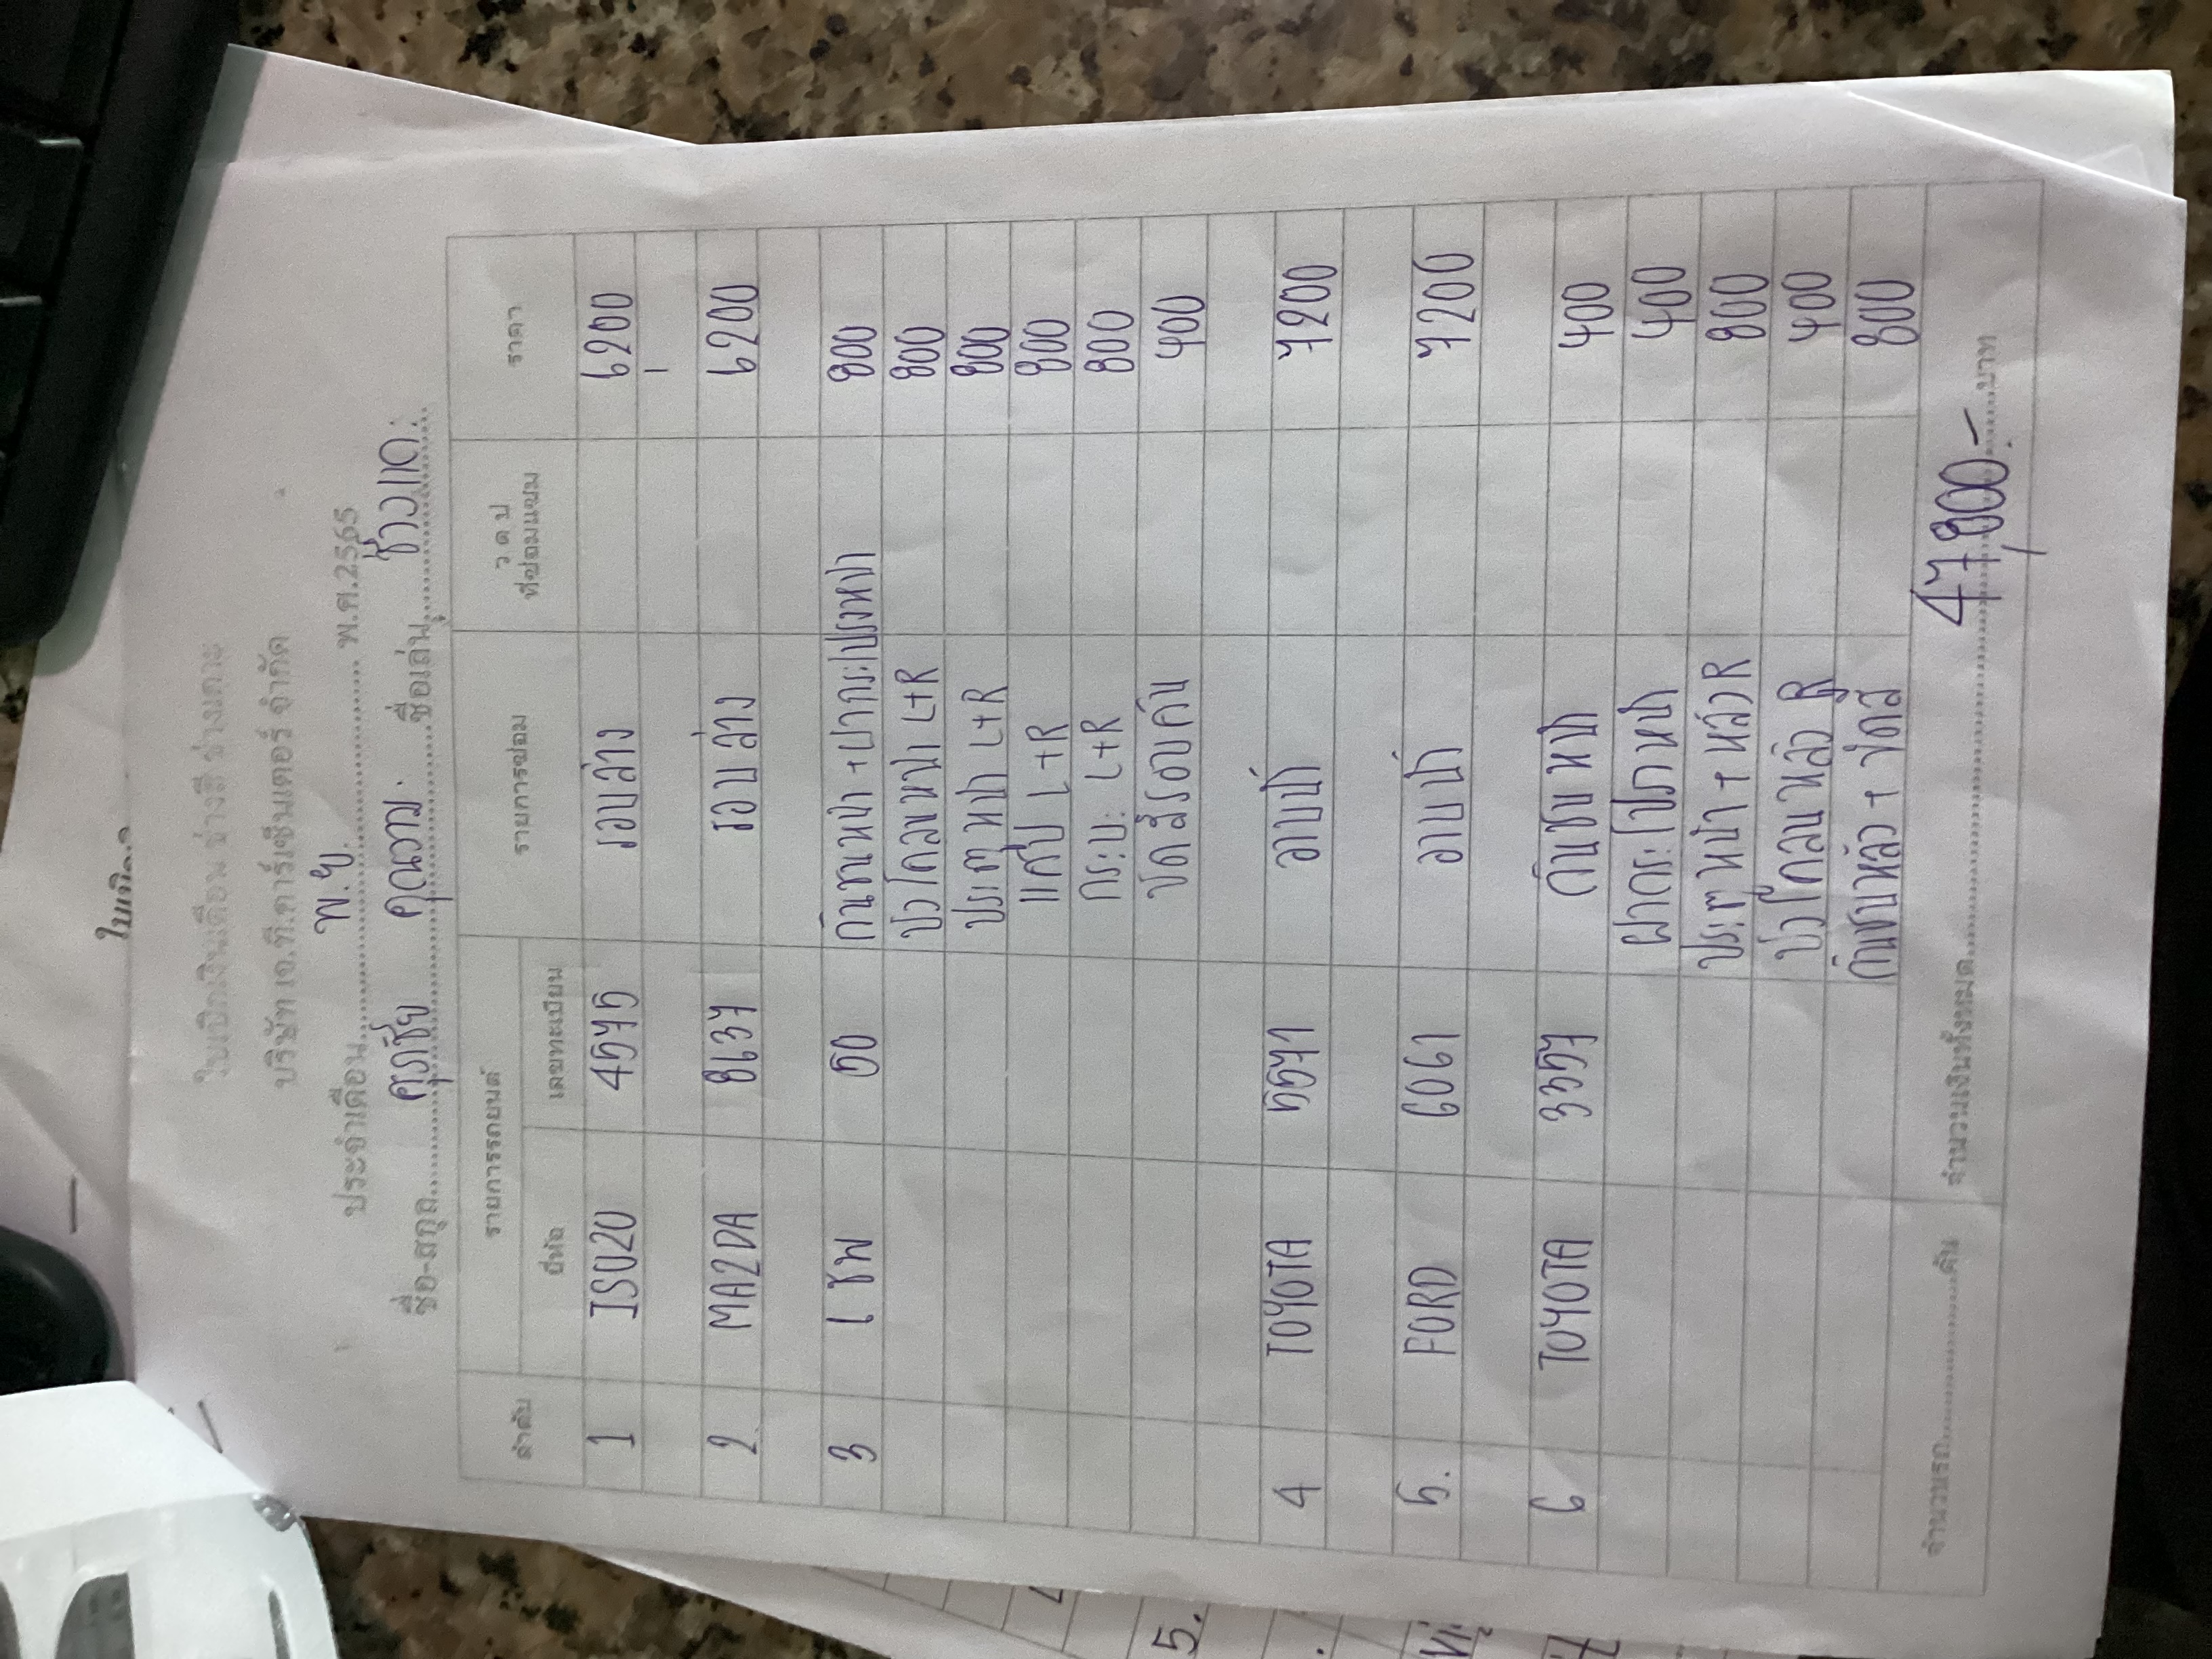 ใบเบิกเงินเดือน ช่างสี ช่างเคาะ
บริษัท เอ.ที.คาร์เซ็นเตอร์ จำกัด
ประจำเดือน พ.ย. พ.ศ.2565
ชื่อ-สกุล ศุภชัย คุณวาม. ชื่อเล่น ช่างแด:
ลำดับ รายการรถยนต์ รายการซ่อม ว ด ป ที่ซ่อมแซม ราคา
ยี่ห้อ เลขทะเบียน
1 ISUZU 4575 รอบล่าง 6200
2 MAZDA 8637 รอบล่าง 6200
3 เชพ 50 กันชนหน้า + ฝากระโปรงหน้า 800
บังโคลนหน้า L+R 800
ประตูหน้า L+R 800
แค็ป L+R 800
กระบะ L+R 800
ขัดสีรอบคัน 400
4 TOYOTA 5571 อาบน้ำ 7200
5. FORD 6061 อาบน้ำ 7200
6 TOYOTA 3357 กันชนหน้า 400
ฝากระโปรงหน้า 400
ประตูหน้า + หลัง R 800
บังโคลนหลัง R 400
กันชนหลัง + ขัดสี 800
จำนวนรถ คัน จำนวนเงินทั้งหมด 47,800.- บาท